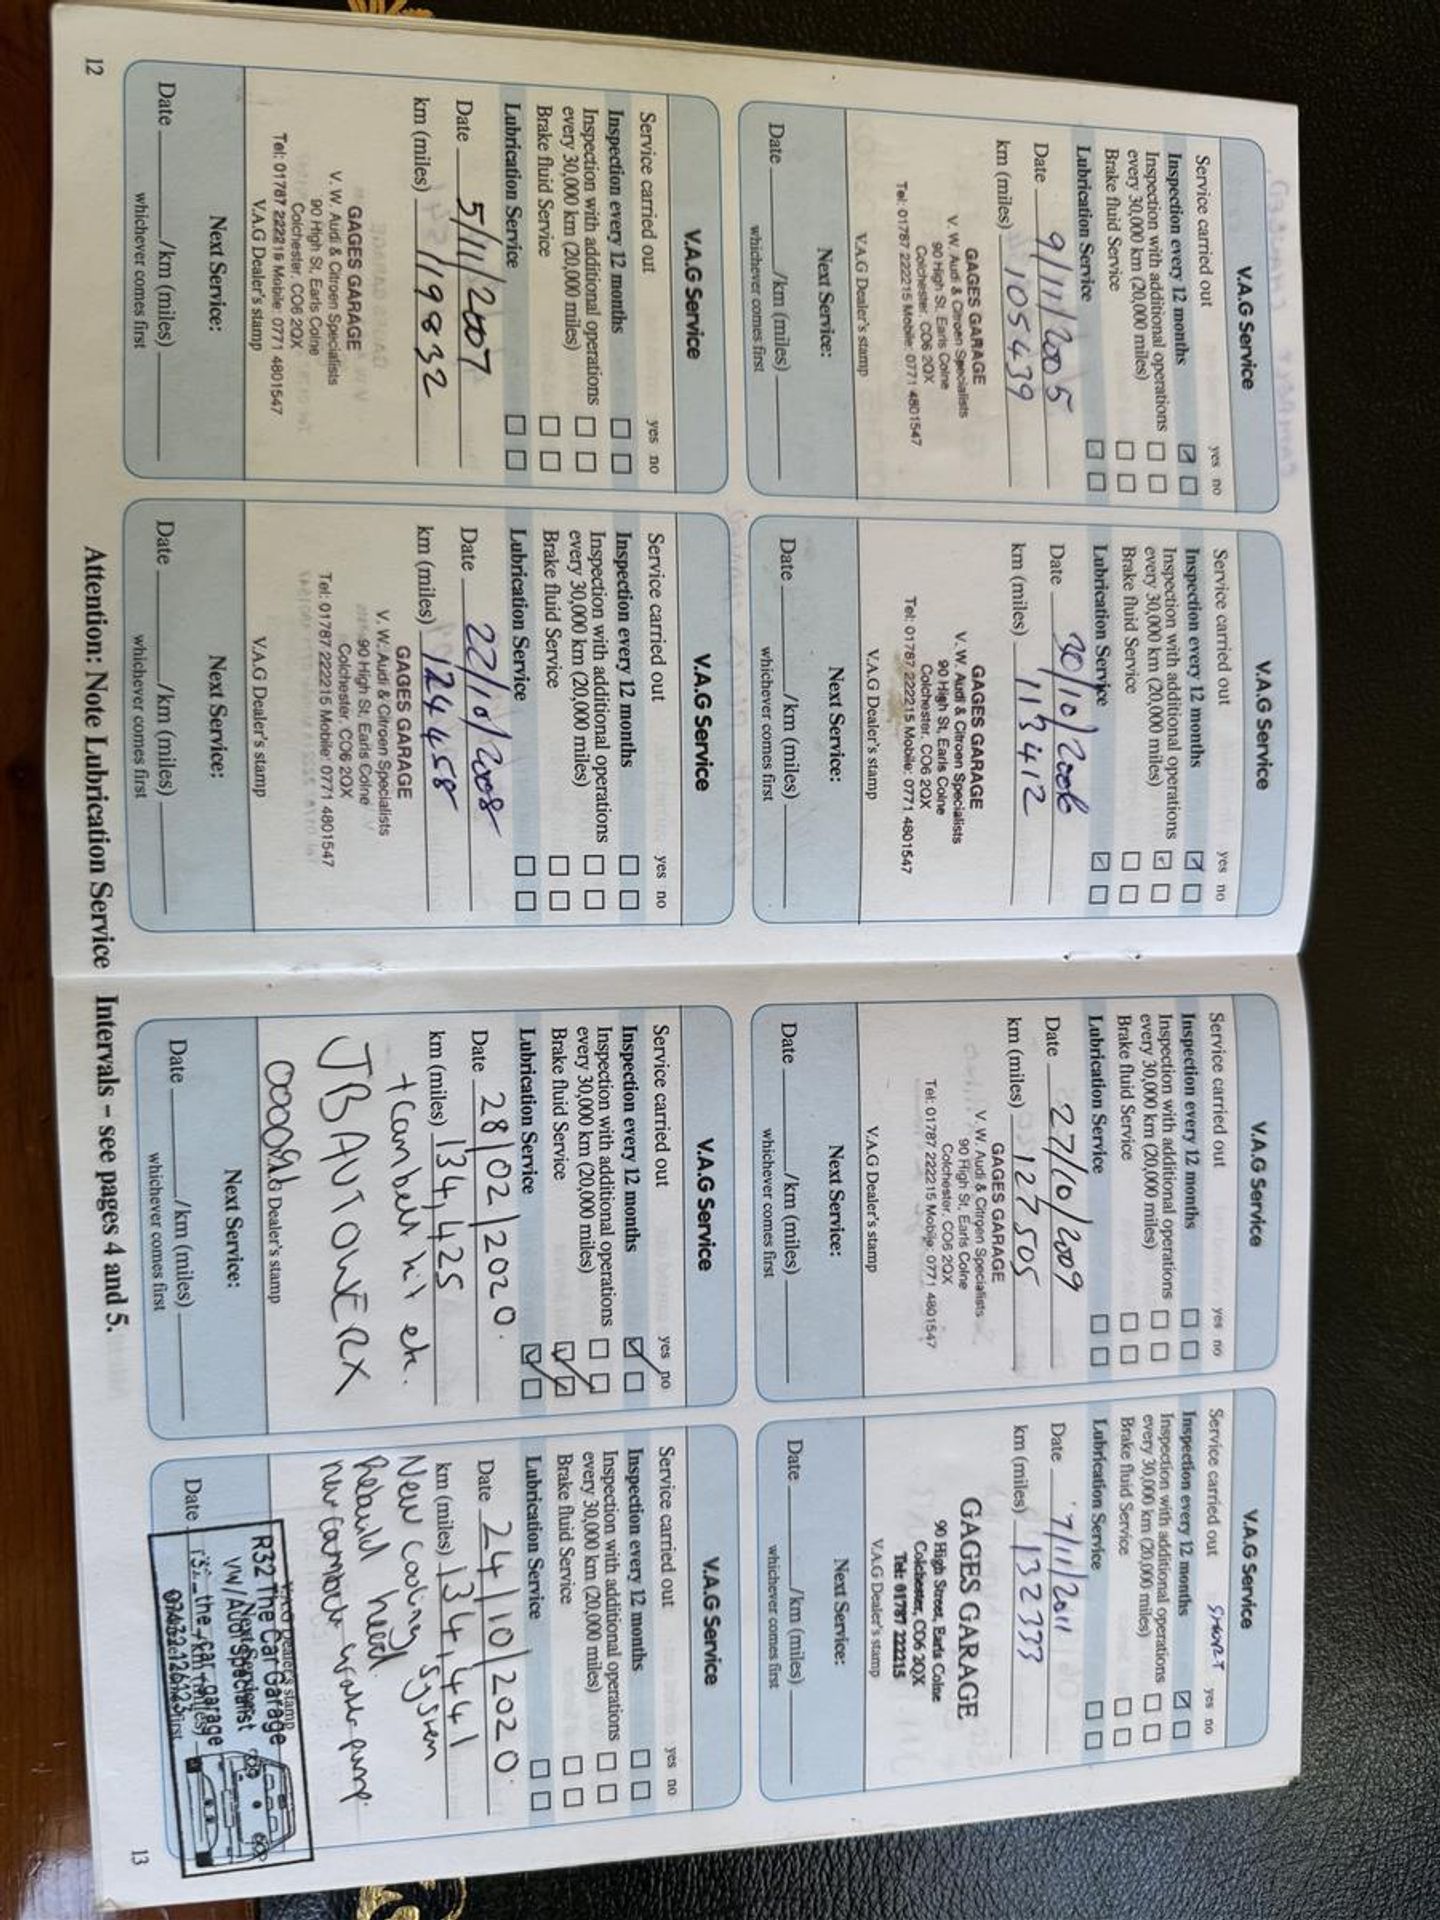 V.A.G Service
Service carried out yes no
Inspection every 12 months
Inspection with additional operations
every 30,000 km (20,000 miles)
Brake fluid Service
Lubrication Service
Date 9/11/2005
km (miles) 105439
GAGES GARAGE
V. W. Audi & Citroen Specialists
90 High St. Earls Colne
Colchester. CO6 2QX
Tel: 01787 222215 Mobile: 0771 4801547
V.A.G Dealer's stamp
Next Service:
Date /km (miles)
whichever comes first
V.A.G Service
Service carried out yes no
Inspection every 12 months
Inspection with additional operations
every 30,000 km (20,000 miles)
Brake fluid Service
Lubrication Service
Date 30/10/2006
km (miles) 113412
GAGES GARAGE
V. W. Audi & Citroen Specialists
90 High St, Earls Colne
Colchester. CO6 2QX
Tel: 01787 222215 Mobile: 0771 4801547
V.A.G Dealer's stamp
Next Service:
Date /km (miles)
whichever comes first
V.A.G Service
Service carried out yes no
Inspection every 12 months
Inspection with additional operations
every 30,000 km (20,000 miles)
Brake fluid Service
Lubrication Service
Date 5/11/2007
km (miles) 119832
GAGES GARAGE
V. W. Audi & Citroen Specialists
90 High St. Earls Colne
Colchester. CO6 2QX
Tel: 01787 222215 Mobile: 0771 4801547
V.A.G Dealer's stamp
Next Service:
Date /km (miles)
whichever comes first
V.A.G Service
Service carried out yes no
Inspection every 12 months
Inspection with additional operations
every 30,000 km (20,000 miles)
Brake fluid Service
Lubrication Service
Date 22/10/2008
km (miles) 124458
GAGES GARAGE
V. W. Audi & Citroen Specialists
90 High St. Earls Colne
Colchester. CO6 2QX
Tel: 01787 222215 Mobile: 0771 4801547
V.A.G Dealer's stamp
Next Service:
Date /km (miles)
whichever comes first
12
V.A.G Service
Service carried out yes no
Inspection every 12 months
Inspection with additional operations
every 30,000 km (20,000 miles)
Brake fluid Service
Lubrication Service
Date 27/10/2009
km (miles) 127505
GAGES GARAGE
V. W. Audi & Citroen Specialists
90 High St. Earls Colne
Colchester. CO6 2QX
Tel: 01787 222215 Mobile: 0771 4801547
V.A.G Dealer's stamp
Next Service:
Date /km (miles)
whichever comes first
V.A.G Service
Service carried out SHORT yes no
Inspection every 12 months
Inspection with additional operations
every 30,000 km (20,000 miles)
Brake fluid Service
Lubrication Service
Date 7/11/2011
km (miles) 132333
GAGES GARAGE
90 High Street, Earls Colne
Colchester, CO6 2QX
Tel: 01787 222215
V.A.G Dealer's stamp
Next Service:
Date /km (miles)
whichever comes first
V.A.G Service
Service carried out yes no
Inspection every 12 months
Inspection with additional operations
every 30,000 km (20,000 miles)
Brake fluid Service
Lubrication Service
Date 28/02/2020.
km (miles) 134,425
+ Cambelt kit etc.
JB AUTOWERX
Dealer's stamp
Next Service:
Date /km (miles)
whichever comes first
V.A.G Service
Service carried out yes no
Inspection every 12 months
Inspection with additional operations
every 30,000 km (20,000 miles)
Brake fluid Service
Lubrication Service
Date 24/10/2020.
km (miles) 134,441
New cooling system
Rebuild head
new cambelt water pump.
R32 The Car Garage
VW/Audi Specialist
Date
Attention: Note Lubrication Service Intervals – see pages 4 and 5.
13